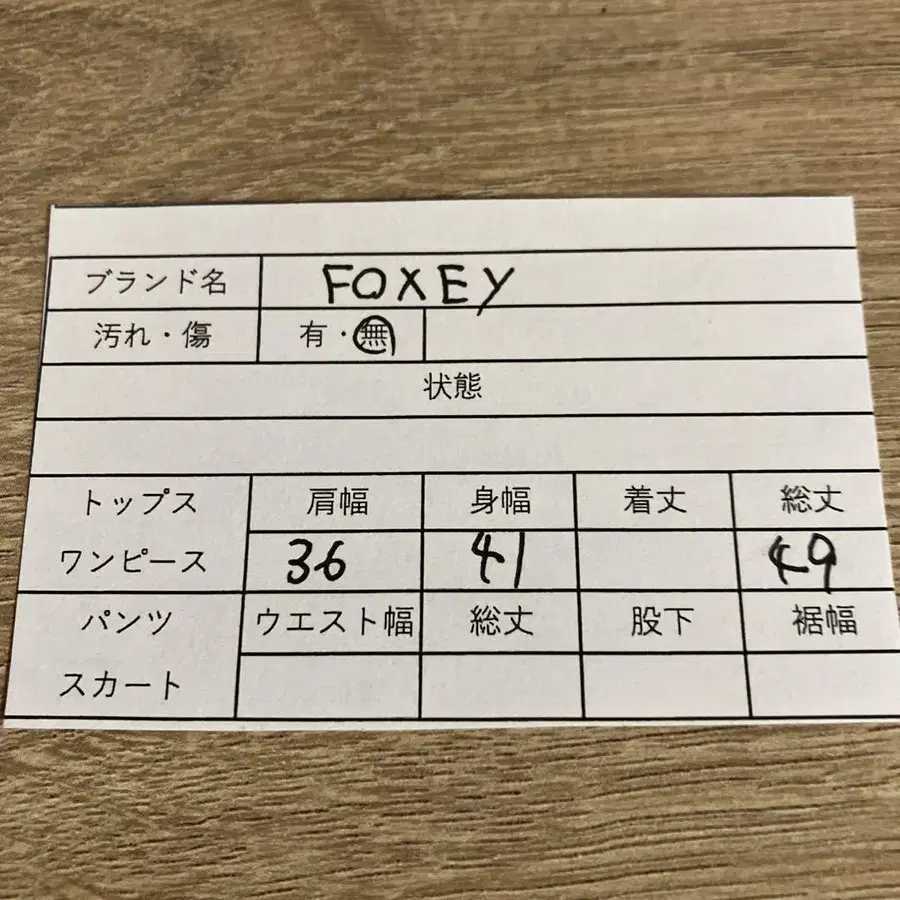 ブランド名 FOXEY
汚れ・傷 有・無
状態
トップス 肩幅 身幅 着丈 総丈
ワンピース 36 41 49
パンツ ウエスト幅 総丈 股下 裾幅
スカート